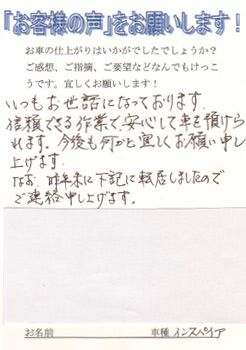 「お客様の声」をお願いします！
お車の仕上がりはいかがでしたでしょうか？
ご感想、ご指摘、ご要望などなんでもけっこ
うです。宜しくお願いします！
いつもお世話になっております。
信頼できる作業で、安心して車を預けら
れます。今後も何かと宜しくお願い申し
上げます。
なお、昨年末に下記に転居しましたので
ご連絡申し上げます。
お名前　車種 インスパイア